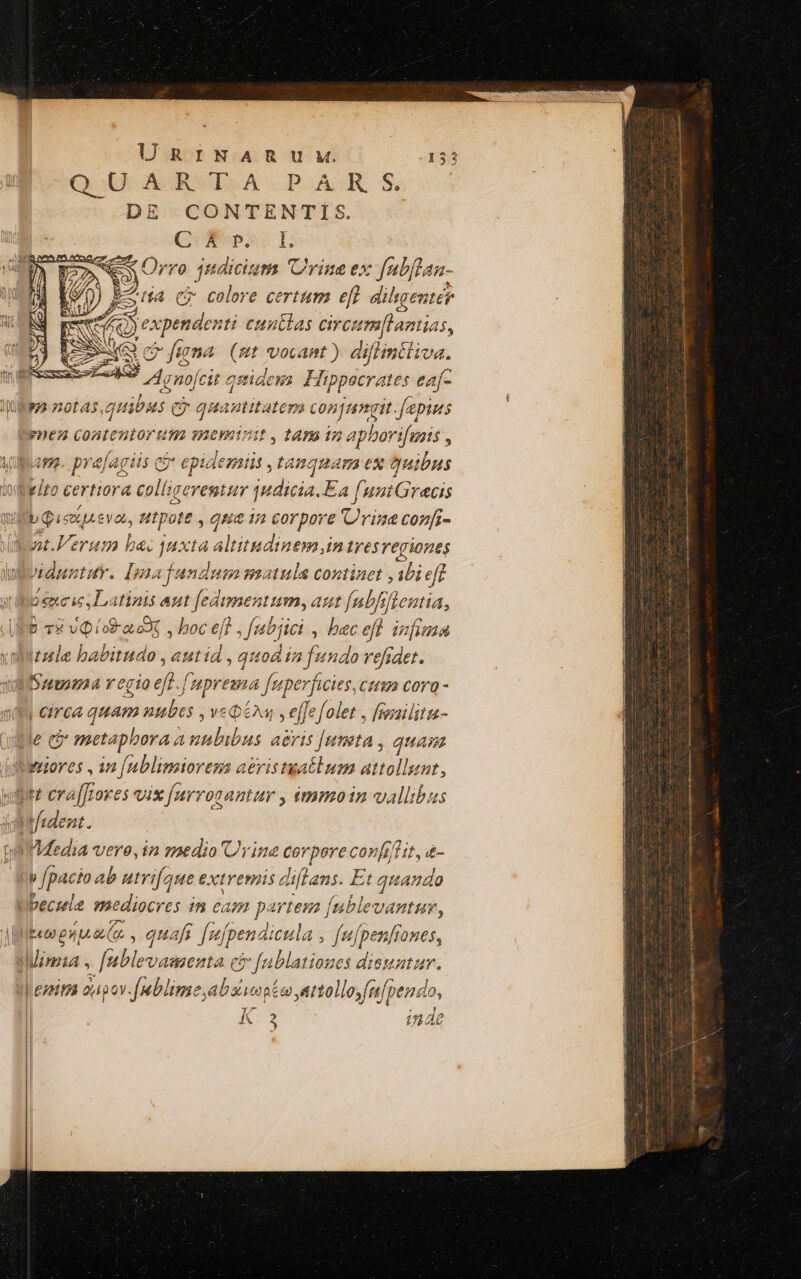 URINARUM. 133
QUARTA PARS.
DE CONTENTIS.
CAP. I.
Orro judicium Urinæ ex substan-
tia & colore certum est diligenter
expendenti cunctas circumstantias,
& signa (ut vocant) distinctiva.
Agnoscit quidem Hippocrates eas-
notas, quibus & quantitatem conjungit. sæpius
contentorum meminit, tam in aphorismis,
præsagiis & epidemiis, tanquam ex quibus
certiora colligerentur judicia. Ea sunt Græcis
utpote, quæ in corpore Urinæ consi-
Verum hæc juxta altitudinem, in tres regiones
Ima fundum matulæ continet, ibi est
Latinis aut sedimentum, aut subsistentia,
hoc est, subjici, hæc est infima
habitudo, aut id, quod in fundo residet.
Summa regio est. suprema superficies, cum coro-
circa quam nubes, νεφέλη, esse solet, similitu-
& metaphora a nubibus aëris sumta, quam
in sublimiorem aëris tractum attollunt,
crassiores vix surrogantur, immo in vallibus

Media vero, in medio Urinæ corpore consistit, æ-
spacio ab utrisque extremis distans. Et quando
mediocres in eam partem sublevantur,
quasi suspendicula, suspensiones,
sublevamenta & sublationes dicuntur.
enim sublime, ab attollo, suspendo,
K 3 inde